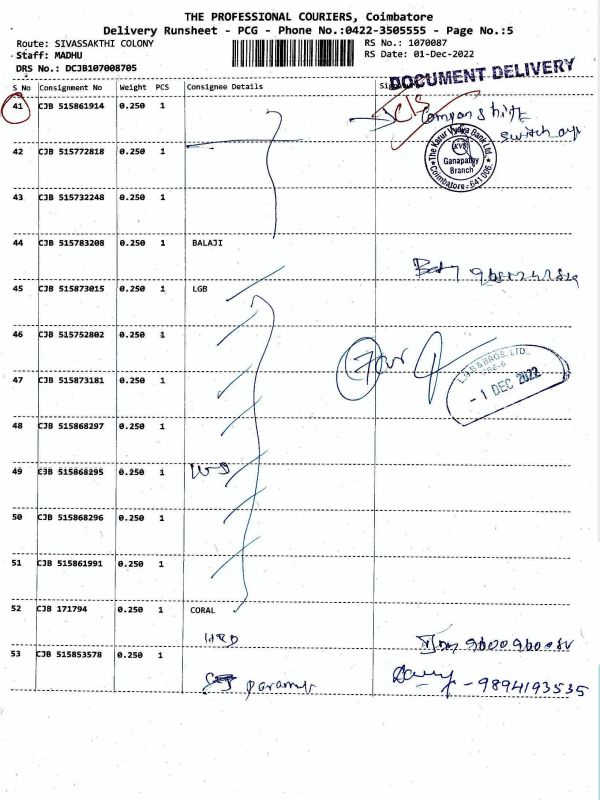 THE PROFESSIONAL COURIERS, Coimbatore
Delivery Runsheet - PCG - Phone No.:0422-3505555 - Page No.:5
Route: SIVASSAKTHI COLONY
Staff: MADHU
DRS No.: DCJB107008705
RS No.: 1070087
RS Date: 01-Dec-2022
DOCUMENT DELIVERY
S No Consignment No Weight PCS Consignee Details
41 CJB 515861914 0.250 1
switch
The Karur Vysya Bank Ltd.
KVB
Ganapathy
Branch
Coimbatore - 641 006.
42 CJB 515772818 0.250 1
43 CJB 515732248 0.250 1
44 CJB 515783208 0.250 1 BALAJI
45 CJB 515873015 0.250 1 LGB
46 CJB 515752802 0.250 1
7
L.G.B & BROS. LTD.,
- 1 DEC 2022
47 CJB 515873181 0.250 1
48 CJB 515868297 0.250 1
49 CJB 515868295 0.250 1
50 CJB 515868296 0.250 1
51 CJB 515861991 0.250 1
52 CJB 171794 0.250 1 CORAL
53 CJB 515853578 0.250 1
- 9894193535